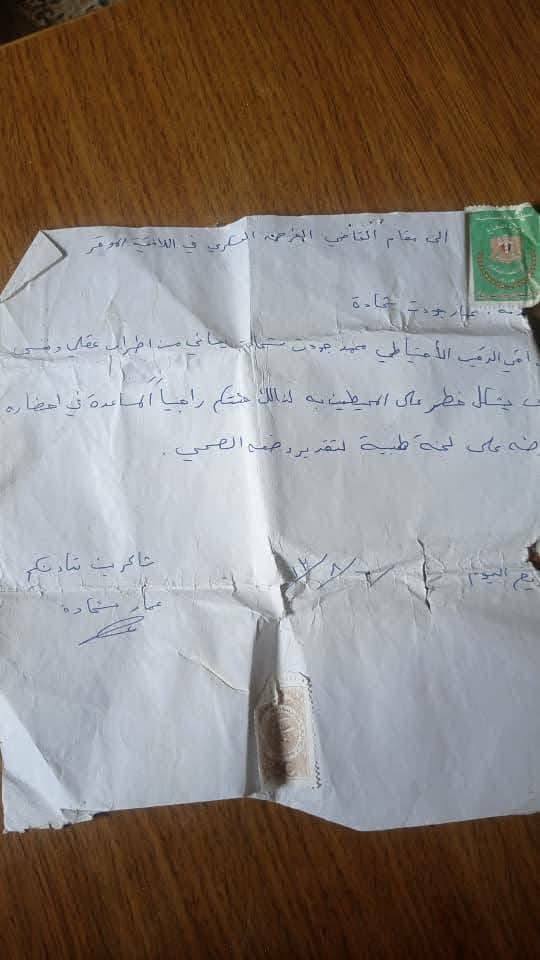 الى مقام القاضي الفرد العسكري في اللاذقية الموقر
عمار جودت شحادة
الرقيب الأحتياطي محمد جودت شحادة يعاني من اظطراب عقلي ونفسي
يشكل خطر على المحيطين به لذالك جئتكم راجياً المساعدة في احضاره
على لجنة طبية لتقدير وضعه الصحي .
اليوم
شاكرين تعاونكم
عمار شحادة